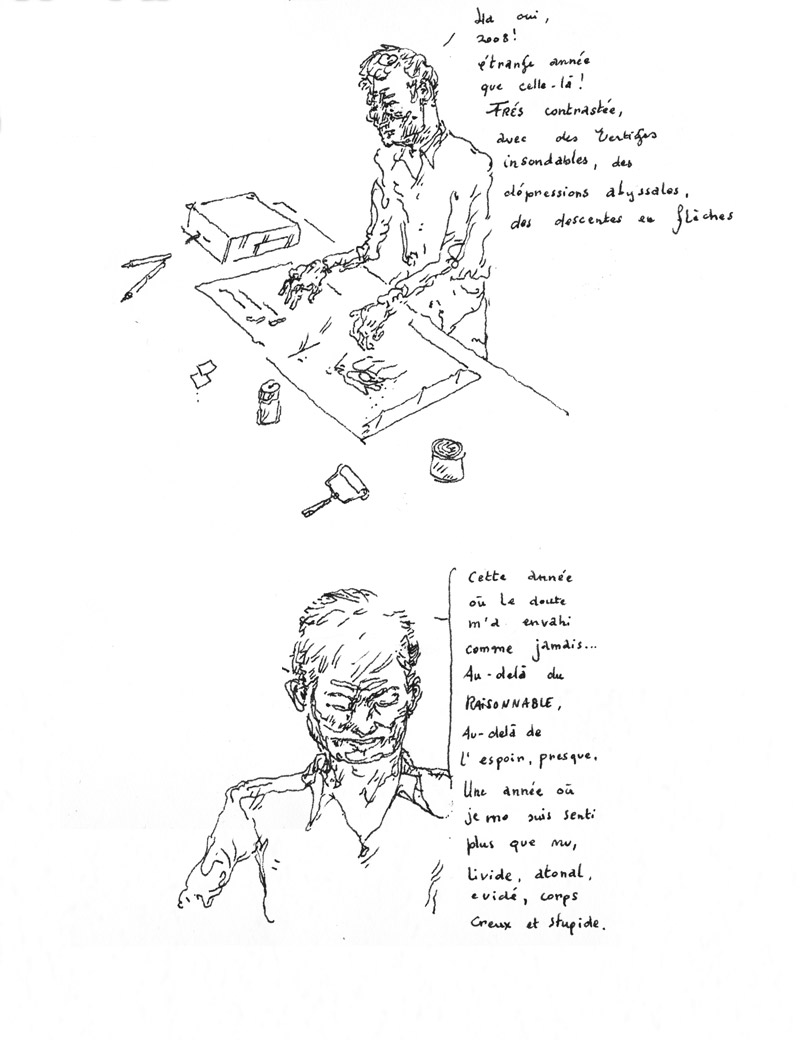 Ha oui,
2008!
étrange année
que celle-là!
TRÉS contrastée,
avec des vertiges
insondables, des
dépressions abyssales,
des descentes en flèches
Cette année
où le doute
m'a envahi
comme jamais...
Au-delà du
RAISONNABLE,
Au-delà de
l'espoir, presque.
Une année où
je me suis senti
plus que nu,
livide, atonal,
evidé, corps
Creux et stupide.